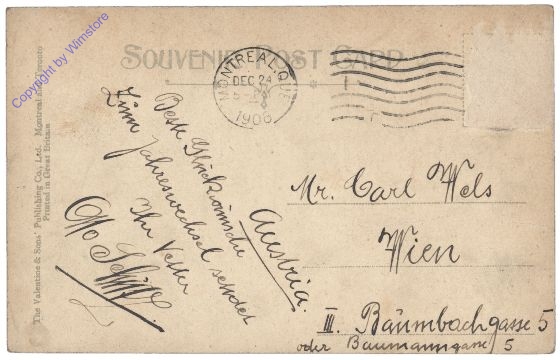 SOUVENIR POST CARD
MONTREAL. QUE
DEC 24
1908
Beste Glückwünsche
Zum Jahreswechsel sendet
Ihr Vetter
Otto
Mr. Carl Wels
Wien
Austria.
III. Bäumbachgasse 5
oder Baumanngasse 5
The Valentine & Sons' Publishing Co., Ltd. Montreal and Toronto
Printed in Great Britain
Copyright by Wimstore